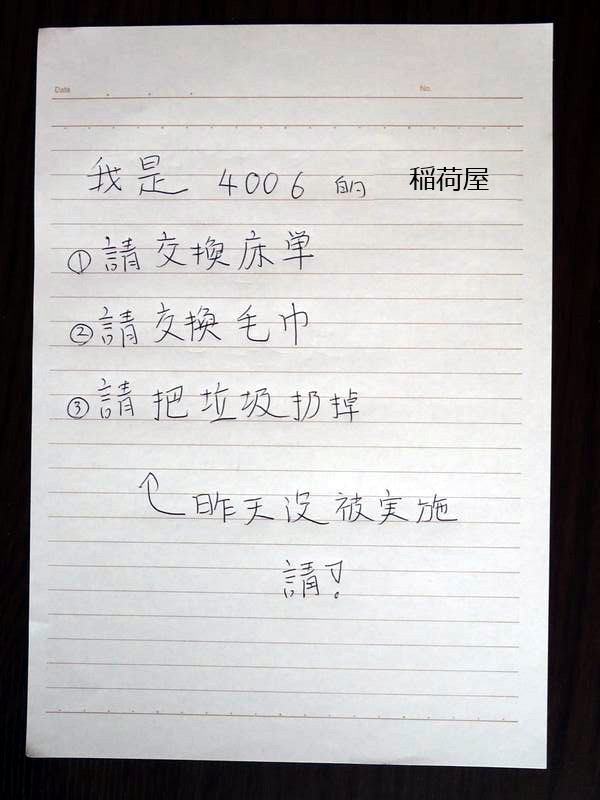 Date No.
我是 4006 的 稲荷屋
①請交換床単
②請交換毛巾
③請把垃圾扔掉
昨天没被実施
請!